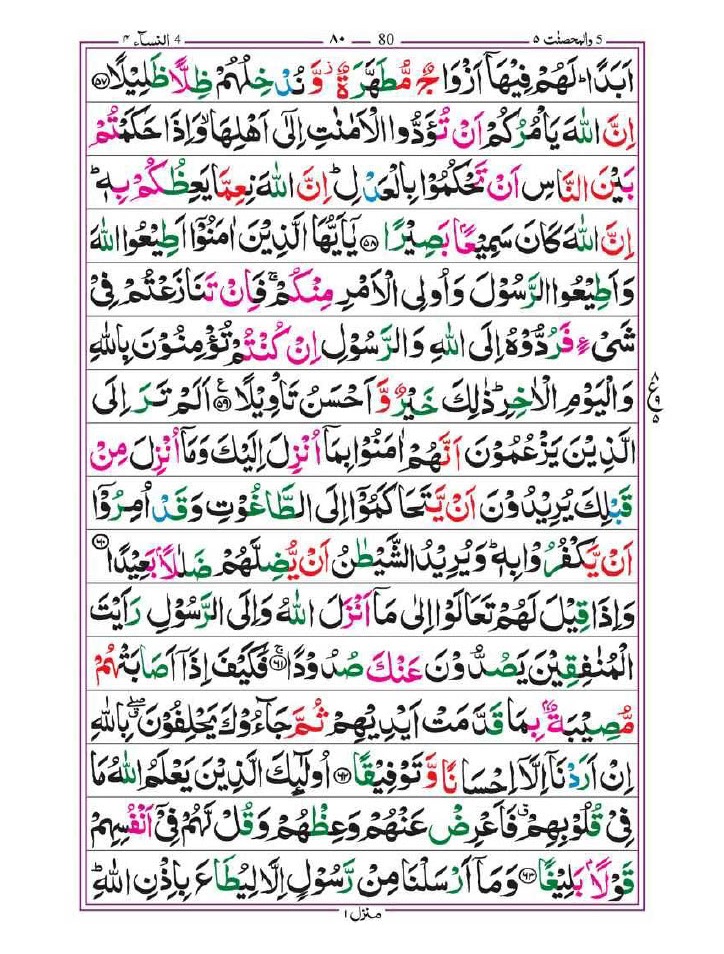 4 النسآء ۴ ۸۰ 80 5 والمحصنت ۵
اَبَدًا ؕ لَهُمْ فِيْهَاۤ اَزْوَاجٌ مُّطَهَّرَةٌ ۙ وَّ نُدْخِلُهُمْ ظِلًّا ظَلِيْلًا ﴿۵۷﴾
اِنَّ اللّٰهَ يَاْمُرُكُمْ اَنْ تُؤَدُّوا الْاَمٰنٰتِ اِلٰۤى اَهْلِهَا ۙ وَاِذَا حَكَمْتُمْ
بَيْنَ النَّاسِ اَنْ تَحْكُمُوْا بِالْعَدْلِ ؕ اِنَّ اللّٰهَ نِعِمَّا يَعِظُكُمْ بِهٖ ؕ
اِنَّ اللّٰهَ كَانَ سَمِيْعًۢا بَصِيْرًا ﴿۵۸﴾ يٰۤاَيُّهَا الَّذِيْنَ اٰمَنُوْۤا اَطِيْعُوا اللّٰهَ
وَاَطِيْعُوا الرَّسُوْلَ وَاُولِى الْاَمْرِ مِنْكُمْ ۚ فَاِنْ تَنَازَعْتُمْ فِىْ
شَىْءٍ فَرُدُّوْهُ اِلَى اللّٰهِ وَالرَّسُوْلِ اِنْ كُنْتُمْ تُؤْمِنُوْنَ بِاللّٰهِ
وَالْيَوْمِ الْاٰخِرِ ؕ ذٰلِكَ خَيْرٌ وَّاَحْسَنُ تَاْوِيْلًا ﴿۵۹﴾ اَلَمْ تَرَ اِلَى
۸ ع ۹ ۵
الَّذِيْنَ يَزْعُمُوْنَ اَنَّهُمْ اٰمَنُوْا بِمَاۤ اُنْزِلَ اِلَيْكَ وَمَاۤ اُنْزِلَ مِنْ
قَبْلِكَ يُرِيْدُوْنَ اَنْ يَّتَحَاكَمُوْۤا اِلَى الطَّاغُوْتِ وَقَدْ اُمِرُوْۤا
اَنْ يَّكْفُرُوْا بِهٖ ؕ وَيُرِيْدُ الشَّيْطٰنُ اَنْ يُّضِلَّهُمْ ضَلٰلًۢا بَعِيْدًا ﴿۶۰﴾
وَاِذَا قِيْلَ لَهُمْ تَعَالَوْا اِلٰى مَاۤ اَنْزَلَ اللّٰهُ وَاِلَى الرَّسُوْلِ رَاَيْتَ
الْمُنٰفِقِيْنَ يَصُدُّوْنَ عَنْكَ صُدُوْدًا ﴿۶۱﴾ فَكَيْفَ اِذَاۤ اَصَابَتْهُمْ
مُّصِيْبَةٌۢ بِمَا قَدَّمَتْ اَيْدِيْهِمْ ثُمَّ جَآءُوْكَ يَحْلِفُوْنَ ۖ بِاللّٰهِ
اِنْ اَرَدْنَاۤ اِلَّاۤ اِحْسَانًا وَّتَوْفِيْقًا ﴿۶۲﴾ اُولٰٓئِكَ الَّذِيْنَ يَعْلَمُ اللّٰهُ مَا
فِىْ قُلُوْبِهِمْ ۗ فَاَعْرِضْ عَنْهُمْ وَعِظْهُمْ وَقُلْ لَّهُمْ فِىْۤ اَنْفُسِهِمْ
قَوْلًۢا بَلِيْغًا ﴿۶۳﴾ وَمَاۤ اَرْسَلْنَا مِنْ رَّسُوْلٍ اِلَّا لِيُطَاعَ بِاِذْنِ اللّٰهِ ؕ
منزل ۱